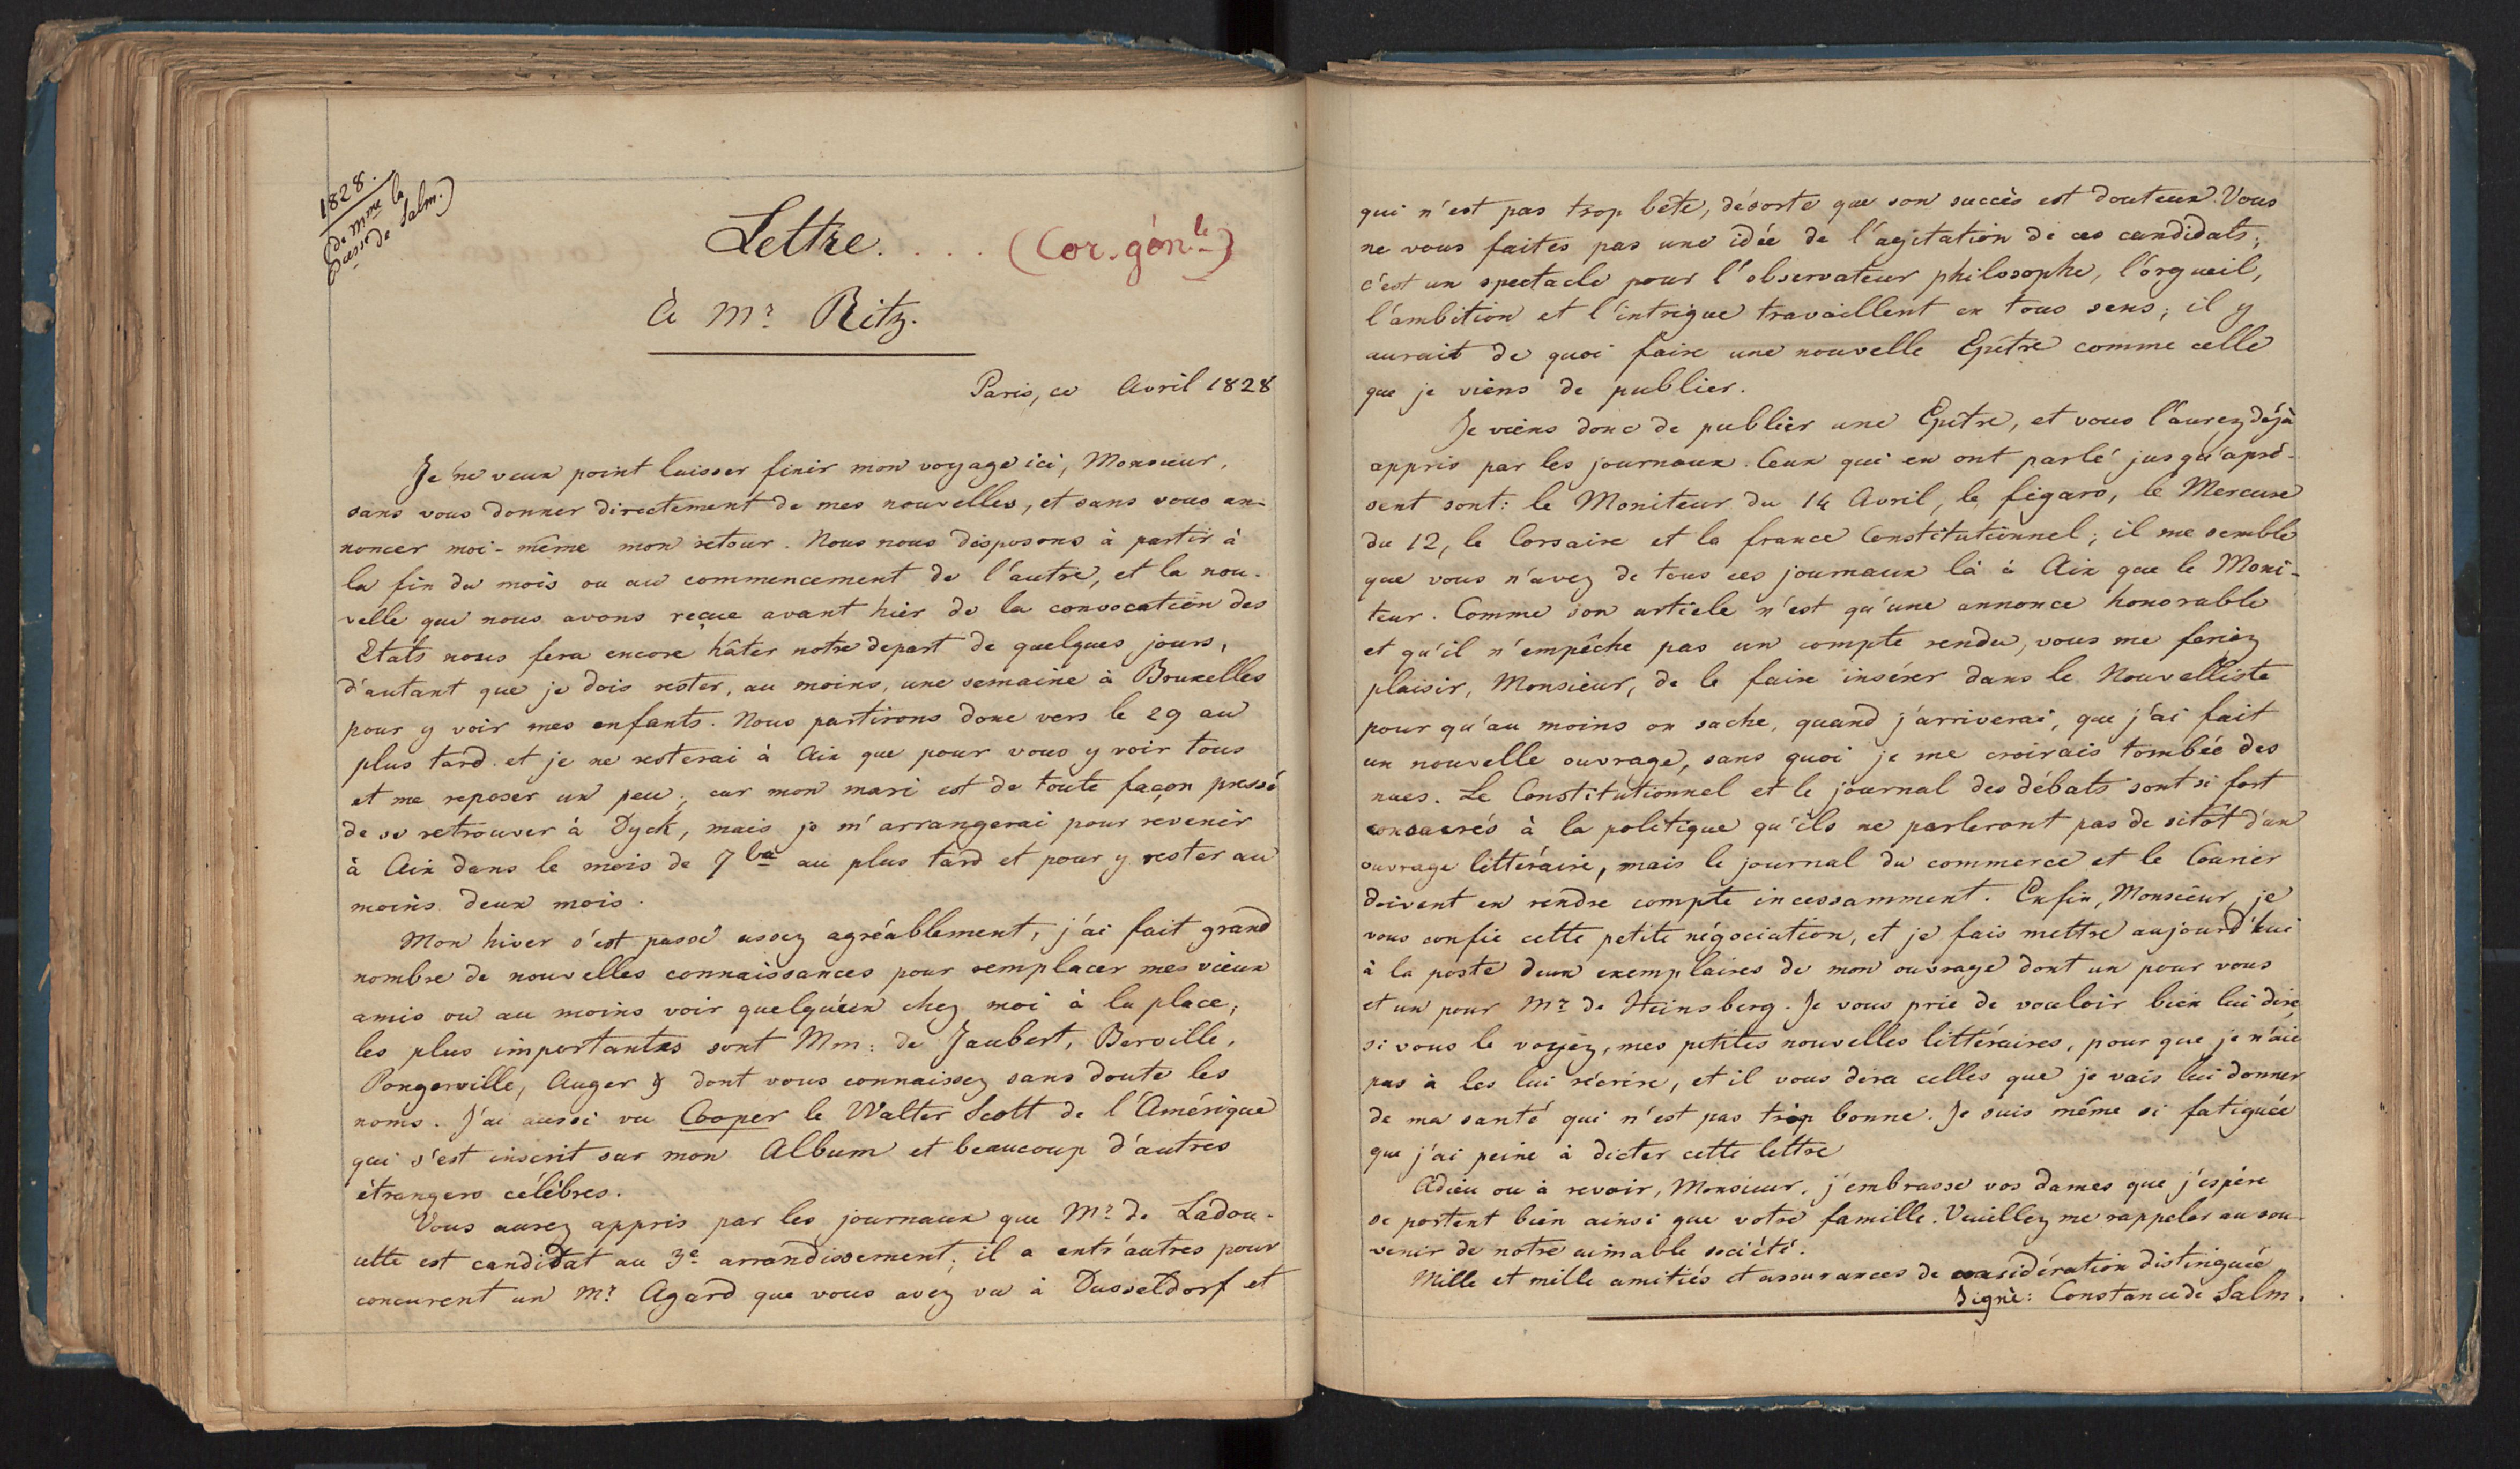 1828.
(de Mme la
Pcesse de Salm.)
Lettre. . . . (Cor. génle)
à Mr Ritz.
Paris, ce Avril 1828
Je ne veux point laisser finir mon voyage ici, Monsieur,
sans vous donner directement de mes nouvelles, et sans vous an-
noncer moi-même mon retour. Nous nous disposons à partir à
la fin du mois ou au commencement de l'autre, et la nou-
velle que nous avons reçue avant hier de la convocation des
Etats nous fera encore hâter notre depart de quelques jours,
d'autant que je dois rester, au moins, une semaine à Bouxelles
pour y voir mes enfants. Nous partirons donc vers le 29 au
plus tard et je ne resterai à Aix que pour vous y voir tous
et me reposer un peu; car mon mari est de toute façon pressé
de se retrouver à Dyck, mais je m'arrangerai pour revenir
à Aix dans le mois de 7bre au plus tard et pour y rester au
moins deux mois.
Mon hiver s'est passé assez agréablement, j'ai fait grand
nombre de nouvelles connaissances pour remplacer mes vieux
amis ou au moins voir quelqu'un chez moi à la place;
les plus importantes sont Mm: de Jaubert, Berville,
Pongerville, Auger & dont vous connaissez sans doute les
noms. J'ai aussi vu Cooper le Walter Scott de l'Amérique
qui s'est inscrit sur mon Album et beaucoup d'autres
étrangers célèbres.
Vous aurez appris par les journaux que Mr de Ladou-
cette est candidat au 3e arrondissement; il a entr'autres pour
concurent un Mr Agard que vous avez vu à Dusseldorf et
qui n'est pas trop bête, désorte que son succès est douteux. Vous
ne vous faites pas une idée de l'agitation de ces candidats;
c'est un spectacle pour l'observateur philosophe, l'orgueil,
l'ambition et l'intrigue travaillent en tous sens; il y
aurait de quoi faire une nouvelle Epitre comme celle
que je viens de publier.
Je viens donc de publier une Epitre, et vous l'aurez déjà
appris par les journaux. Ceux qui en ont parlé jusqu'apré-
sent sont: le Moniteur du 14 Avril, le figaro, le Mercure
du 12, le Corsaire et la france Constitutionnel; il me semble
que vous n'avez de tous ces journaux là à Aix que le Moni-
teur. Comme son article n'est qu'une annonce honorable
et qu'il n'empêche pas un compte rendu, vous me feriez
plaisir, Monsieur, de le faire insérer dans le Nouvelliste
pour qu'au moins on sache, quand j'arriverai, que j'ai fait
un nouvelle ouvrage, sans quoi je me croirais tombée des
nues. Le Constitutionnel et le journal des débats sont si fort
consacrés à la politique qu'ils ne parleront pas de sitôt d'un
ouvrage littéraire, mais le journal du commerce et le Courier
doivent en rendre compte incessamment. Enfin, Monsieur, je
vous confie cette petite négociation, et je fais mettre aujourd'hui
à la poste deux exemplaires de mon ouvrage dont un pour vous
et un pour Mr de Heinsberg. Je vous prie de vouloir bien lui dire,
si vous le voyez, mes petites nouvelles littéraires, pour que je n'aie
pas à les lui récrire, et il vous dira celles que je vais lui donner
de ma santé qui n'est pas trop bonne. Je suis même si fatiguée
que j'ai peine à dicter cette lettre
Adieu ou à revoir, Monsieur, j'embrasse vos dames que j'espére
se portent bien ainsi que votre famille. Veuillez me rappeler au sou-
venir de notre aimable société.
Mille et mille amitiés et assurances de considération distinguée
Signé: Constance de Salm.